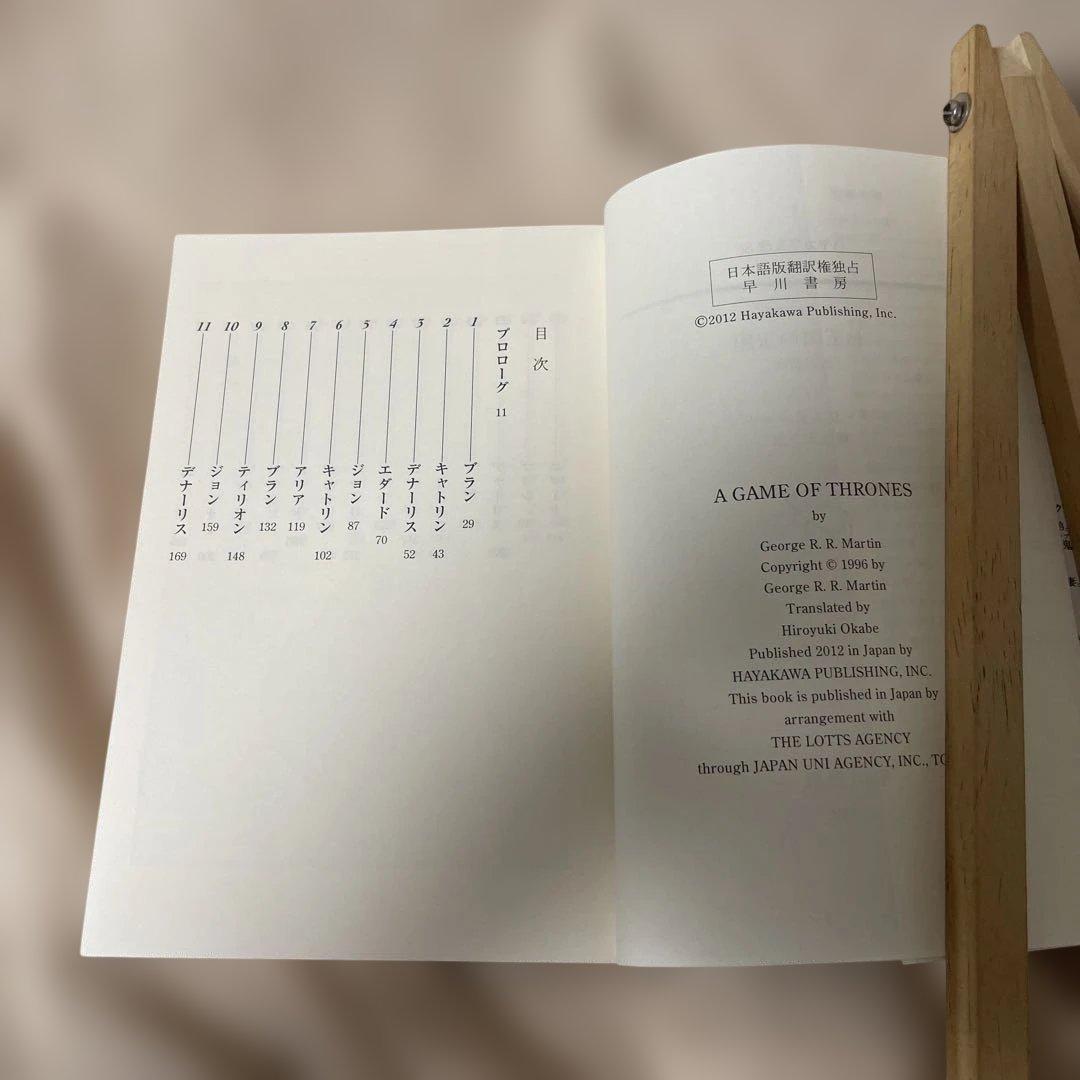 日本語版翻訳権独占
早川書房
©2012 Hayakawa Publishing, Inc.
A GAME OF THRONES
by
George R. R. Martin
Copyright © 1996 by
George R. R. Martin
Translated by
Hiroyuki Okabe
Published 2012 in Japan by
HAYAKAWA PUBLISHING, INC.
This book is published in Japan by
arrangement with
THE LOTTS AGENCY
through JAPAN UNI AGENCY, INC.,
目次
プロローグ 11
1 ブラン 29
2 キャトリン 43
3 デナーリス 52
4 エダード 70
5 ジョン 87
6 キャトリン 102
7 アリア 119
8 ブラン 132
9 ティリオン 148
10 ジョン 159
11 デナーリス 169